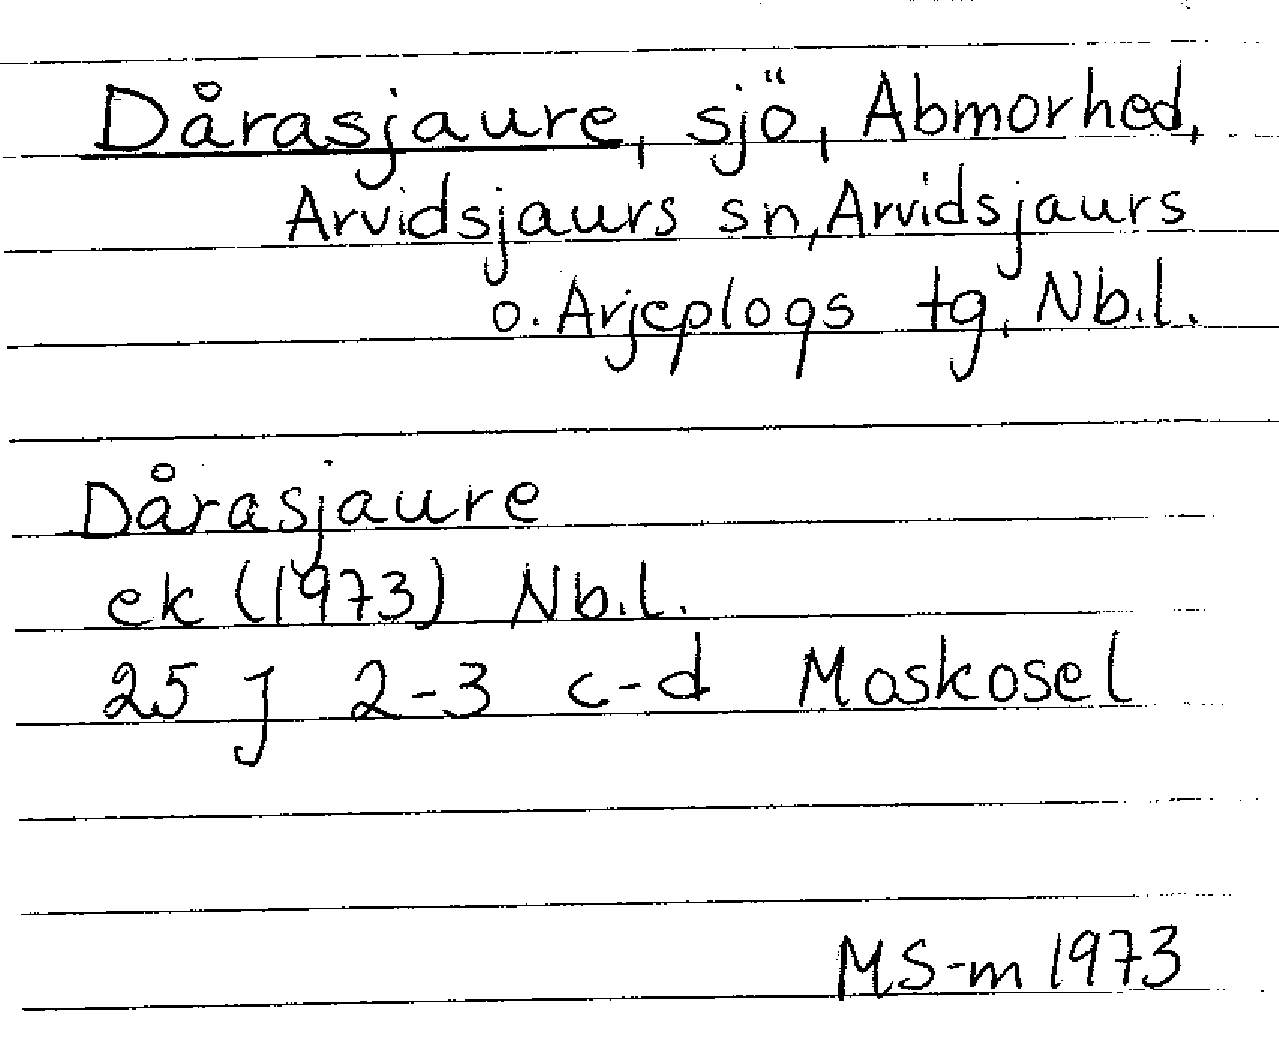 Dårasjaure, sjö, Abmorhed,
Arvidsjaurs sn, Arvidsjaurs
o. Arjeplogs tg, Nb.l.
Dårasjaure
ek (1973) Nb.l.
25 J 2-3 c-d Moskosel
MS-m 1973